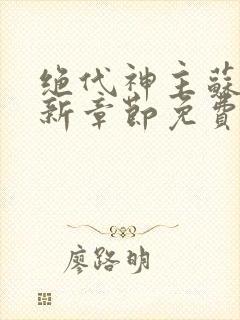 绝代神主蘇
新章節免費
廖路明